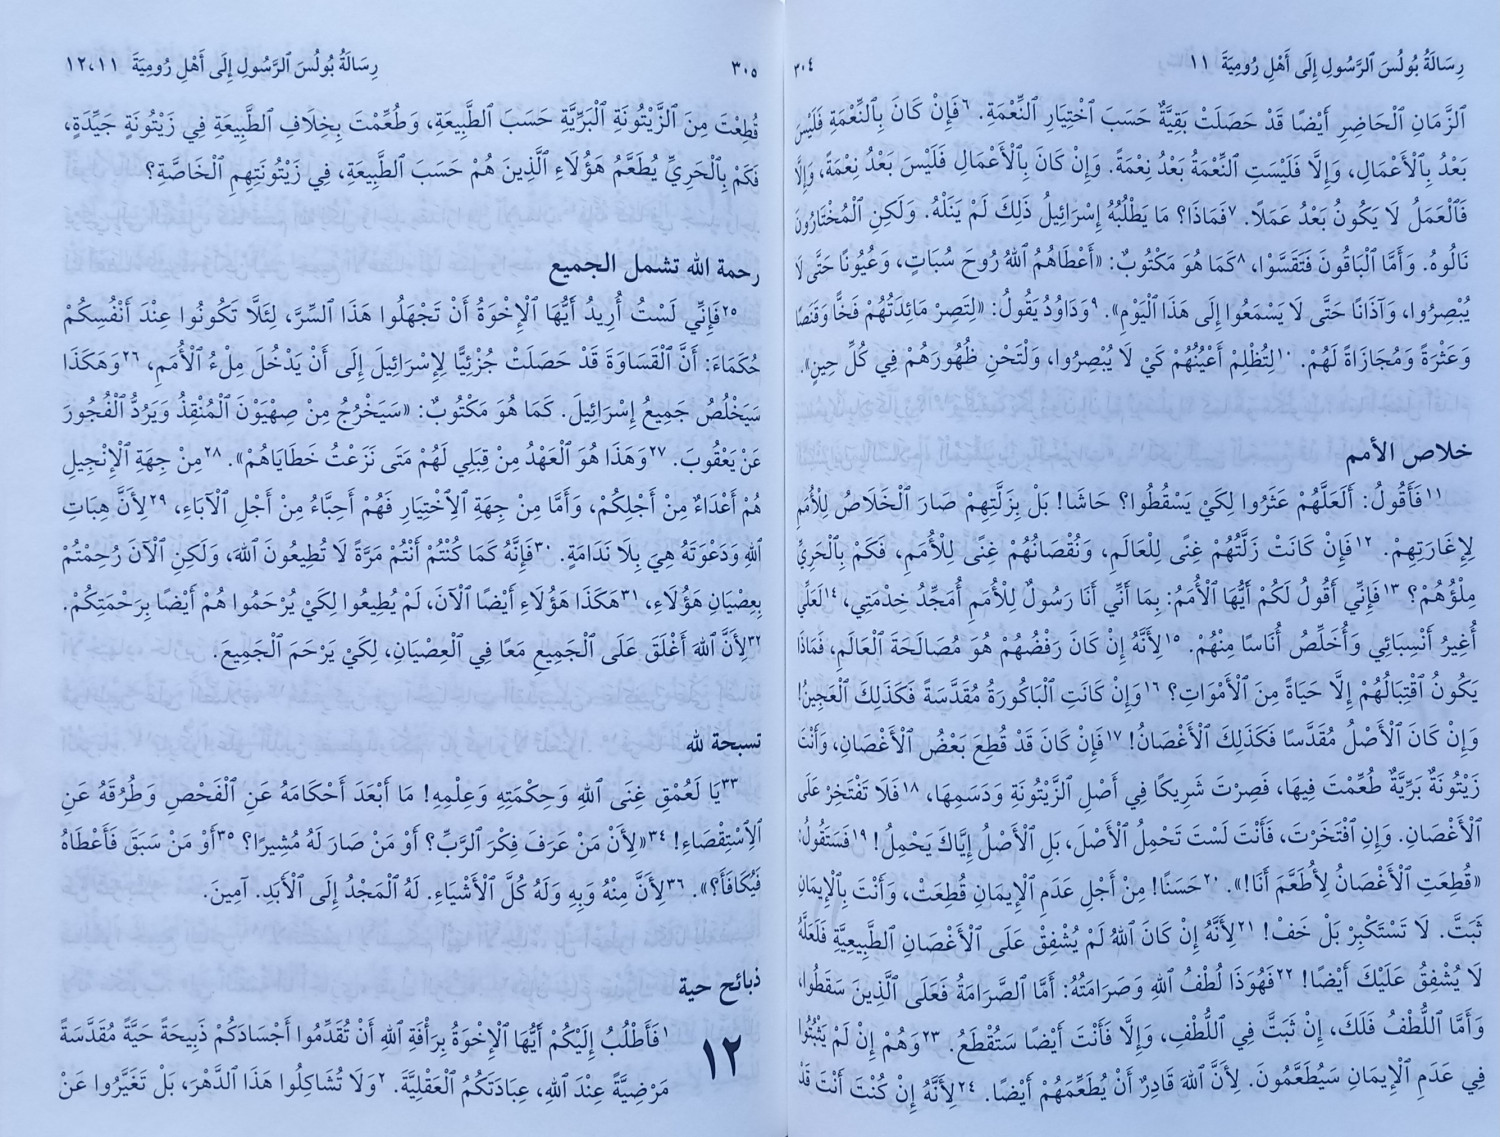 رِسَالَةُ بُولُسَ ٱلرَّسُولِ إِلَى أَهْلِ رُومِيَةَ ١١ ٣٠٤
ٱلزَّمَانِ ٱلْحَاضِرِ أَيْضًا قَدْ حَصَلَتْ بَقِيَّةٌ حَسَبَ ٱخْتِيَارِ ٱلنِّعْمَةِ. ٦فَإِنْ كَانَ بِٱلنِّعْمَةِ فَلَيْسَ
بَعْدُ بِٱلْأَعْمَالِ، وَإِلَّا فَلَيْسَتِ ٱلنِّعْمَةُ بَعْدُ نِعْمَةً. وَإِنْ كَانَ بِٱلْأَعْمَالِ فَلَيْسَ بَعْدُ نِعْمَةً، وَإِلَّا
فَٱلْعَمَلُ لَا يَكُونُ بَعْدُ عَمَلًا. ٧فَمَاذَا؟ مَا يَطْلُبُهُ إِسْرَائِيلُ ذَلِكَ لَمْ يَنَلْهُ. وَلَكِنِ ٱلْمُخْتَارُونَ
نَالُوهُ. وَأَمَّا ٱلْبَاقُونَ فَتَقَسَّوْا، ٨كَمَا هُوَ مَكْتُوبٌ: «أَعْطَاهُمُ ٱللهُ رُوحَ سُبَاتٍ، وَعُيُونًا حَتَّى لَا
يُبْصِرُوا، وَآذَانًا حَتَّى لَا يَسْمَعُوا إِلَى هَذَا ٱلْيَوْمِ». ٩وَدَاوُدُ يَقُولُ: «لِتَصِرْ مَائِدَتُهُمْ فَخًّا وَقَنَصًا
وَعَثْرَةً وَمُجَازَاةً لَهُمْ. ١٠لِتُظْلِمْ أَعْيُنُهُمْ كَيْ لَا يُبْصِرُوا، وَلْتَحْنِ ظُهُورَهُمْ فِي كُلِّ حِينٍ».
خلاص الأمم
١١فَأَقُولُ: أَلَعَلَّهُمْ عَثَرُوا لِكَيْ يَسْقُطُوا؟ حَاشَا! بَلْ بِزَلَّتِهِمْ صَارَ ٱلْخَلَاصُ لِلْأُمَمِ
لِإِغَارَتِهِمْ. ١٢فَإِنْ كَانَتْ زَلَّتُهُمْ غِنًى لِلْعَالَمِ، وَنُقْصَانُهُمْ غِنًى لِلْأُمَمِ، فَكَمْ بِٱلْحَرِيِّ
مِلْؤُهُمْ؟ ١٣فَإِنِّي أَقُولُ لَكُمْ أَيُّهَا ٱلْأُمَمُ: بِمَا أَنِّي أَنَا رَسُولٌ لِلْأُمَمِ أُمَجِّدُ خِدْمَتِي، ١٤لَعَلِّي
أُغِيرُ أَنْسِبَائِي وَأُخَلِّصُ أُنَاسًا مِنْهُمْ. ١٥لِأَنَّهُ إِنْ كَانَ رَفْضُهُمْ هُوَ مُصَالَحَةَ ٱلْعَالَمِ، فَمَاذَا
يَكُونُ ٱقْتِبَالُهُمْ إِلَّا حَيَاةً مِنَ ٱلْأَمْوَاتِ؟ ١٦وَإِنْ كَانَتِ ٱلْبَاكُورَةُ مُقَدَّسَةً فَكَذَلِكَ ٱلْعَجِينُ!
وَإِنْ كَانَ ٱلْأَصْلُ مُقَدَّسًا فَكَذَلِكَ ٱلْأَغْصَانُ! ١٧فَإِنْ كَانَ قَدْ قُطِعَ بَعْضُ ٱلْأَغْصَانِ، وَأَنْتَ
زَيْتُونَةٌ بَرِّيَّةٌ طُعِّمْتَ فِيهَا، فَصِرْتَ شَرِيكًا فِي أَصْلِ ٱلزَّيْتُونَةِ وَدَسَمِهَا، ١٨فَلَا تَفْتَخِرْ عَلَى
ٱلْأَغْصَانِ. وَإِنِ ٱفْتَخَرْتَ، فَأَنْتَ لَسْتَ تَحْمِلُ ٱلْأَصْلَ، بَلِ ٱلْأَصْلُ إِيَّاكَ يَحْمِلُ! ١٩فَسَتَقُولُ:
«قُطِعَتِ ٱلْأَغْصَانُ لِأُطَعَّمَ أَنَا!». ٢٠حَسَنًا! مِنْ أَجْلِ عَدَمِ ٱلْإِيمَانِ قُطِعَتْ، وَأَنْتَ بِٱلْإِيمَانِ
ثَبَتَّ. لَا تَسْتَكْبِرْ بَلْ خَفْ! ٢١لِأَنَّهُ إِنْ كَانَ ٱللهُ لَمْ يُشْفِقْ عَلَى ٱلْأَغْصَانِ ٱلطَّبِيعِيَّةِ فَلَعَلَّهُ
لَا يُشْفِقُ عَلَيْكَ أَيْضًا! ٢٢فَهُوَذَا لُطْفُ ٱللهِ وَصَرَامَتُهُ: أَمَّا ٱلصَّرَامَةُ فَعَلَى ٱلَّذِينَ سَقَطُوا،
وَأَمَّا ٱللُّطْفُ فَلَكَ، إِنْ ثَبَتَّ فِي ٱللُّطْفِ، وَإِلَّا فَأَنْتَ أَيْضًا سَتُقْطَعُ. ٢٣وَهُمْ إِنْ لَمْ يَثْبُتُوا
فِي عَدَمِ ٱلْإِيمَانِ سَيُطَعَّمُونَ. لِأَنَّ ٱللهَ قَادِرٌ أَنْ يُطَعِّمَهُمْ أَيْضًا. ٢٤لِأَنَّهُ إِنْ كُنْتَ أَنْتَ قَدْ
٣٠٥ رِسَالَةُ بُولُسَ ٱلرَّسُولِ إِلَى أَهْلِ رُومِيَةَ ١١، ١٢
قُطِعْتَ مِنَ ٱلزَّيْتُونَةِ ٱلْبَرِّيَّةِ حَسَبَ ٱلطَّبِيعَةِ، وَطُعِّمْتَ بِخِلَافِ ٱلطَّبِيعَةِ فِي زَيْتُونَةٍ جَيِّدَةٍ،
فَكَمْ بِٱلْحَرِيِّ يُطَعَّمُ هَؤُلَاءِ ٱلَّذِينَ هُمْ حَسَبَ ٱلطَّبِيعَةِ، فِي زَيْتُونَتِهِمِ ٱلْخَاصَّةِ؟
رحمة الله تشمل الجميع
٢٥فَإِنِّي لَسْتُ أُرِيدُ أَيُّهَا ٱلْإِخْوَةُ أَنْ تَجْهَلُوا هَذَا ٱلسِّرَّ، لِئَلَّا تَكُونُوا عِنْدَ أَنْفُسِكُمْ
حُكَمَاءَ: أَنَّ ٱلْقَسَاوَةَ قَدْ حَصَلَتْ جُزْئِيًّا لِإِسْرَائِيلَ إِلَى أَنْ يَدْخُلَ مِلْءُ ٱلْأُمَمِ، ٢٦وَهَكَذَا
سَيَخْلُصُ جَمِيعُ إِسْرَائِيلَ. كَمَا هُوَ مَكْتُوبٌ: «سَيَخْرُجُ مِنْ صِهْيَوْنَ ٱلْمُنْقِذُ وَيَرُدُّ ٱلْفُجُورَ
عَنْ يَعْقُوبَ. ٢٧وَهَذَا هُوَ ٱلْعَهْدُ مِنْ قِبَلِي لَهُمْ مَتَى نَزَعْتُ خَطَايَاهُمْ». ٢٨مِنْ جِهَةِ ٱلْإِنْجِيلِ
هُمْ أَعْدَاءٌ مِنْ أَجْلِكُمْ، وَأَمَّا مِنْ جِهَةِ ٱلِٱخْتِيَارِ فَهُمْ أَحِبَّاءُ مِنْ أَجْلِ ٱلْآبَاءِ، ٢٩لِأَنَّ هِبَاتِ
ٱللهِ وَدَعْوَتَهُ هِيَ بِلَا نَدَامَةٍ. ٣٠فَإِنَّهُ كَمَا كُنْتُمْ أَنْتُمْ مَرَّةً لَا تُطِيعُونَ ٱللهَ، وَلَكِنِ ٱلْآنَ رُحِمْتُمْ
بِعِصْيَانِ هَؤُلَاءِ، ٣١هَكَذَا هَؤُلَاءِ أَيْضًا ٱلْآنَ، لَمْ يُطِيعُوا لِكَيْ يُرْحَمُوا هُمْ أَيْضًا بِرَحْمَتِكُمْ.
٣٢لِأَنَّ ٱللهَ أَغْلَقَ عَلَى ٱلْجَمِيعِ مَعًا فِي ٱلْعِصْيَانِ، لِكَيْ يَرْحَمَ ٱلْجَمِيعَ.
تسبحة لله
٣٣يَا لَعُمْقِ غِنَى ٱللهِ وَحِكْمَتِهِ وَعِلْمِهِ! مَا أَبْعَدَ أَحْكَامَهُ عَنِ ٱلْفَحْصِ وَطُرُقَهُ عَنِ
ٱلِٱسْتِقْصَاءِ! ٣٤«لِأَنْ مَنْ عَرَفَ فِكْرَ ٱلرَّبِّ؟ أَوْ مَنْ صَارَ لَهُ مُشِيرًا؟ ٣٥أَوْ مَنْ سَبَقَ فَأَعْطَاهُ
فَيُكَافَأَ؟». ٣٦لِأَنَّ مِنْهُ وَبِهِ وَلَهُ كُلَّ ٱلْأَشْيَاءِ. لَهُ ٱلْمَجْدُ إِلَى ٱلْأَبَدِ. آمِينَ.
ذبائح حية
١٢ ١فَأَطْلُبُ إِلَيْكُمْ أَيُّهَا ٱلْإِخْوَةُ بِرَأْفَةِ ٱللهِ أَنْ تُقَدِّمُوا أَجْسَادَكُمْ ذَبِيحَةً حَيَّةً مُقَدَّسَةً
مَرْضِيَّةً عِنْدَ ٱللهِ، عِبَادَتَكُمُ ٱلْعَقْلِيَّةَ. ٢وَلَا تُشَاكِلُوا هَذَا ٱلدَّهْرَ، بَلْ تَغَيَّرُوا عَنْ